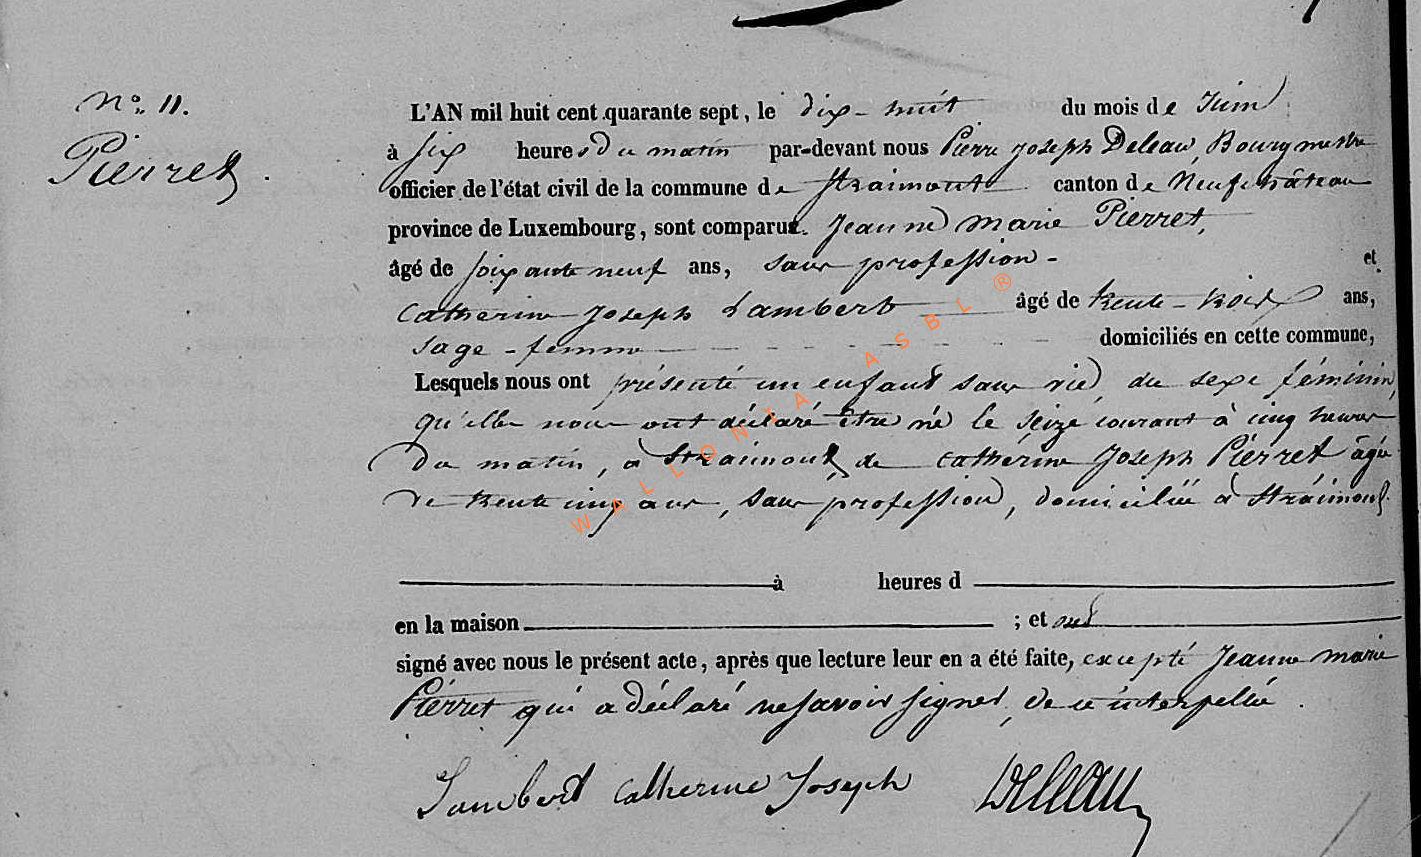 No. 11.
Pierret.
L'AN mil huit cent quarante sept, le dix-huit du mois de Juin
à six heures du matin par-devant nous Pierre Joseph Deleau, Bourgmestre
officier de l'état civil de la commune de Straimont canton de Neufchâteau
province de Luxembourg, sont comparus. Jeanne Marie Pierret,
âgé de soixante neuf ans, sans profession - et
Catherine Joseph Lambert âgé de trente-trois ans,
sage-femme domiciliés en cette commune,
Lesquels nous ont présenté un enfant sans vie, du sexe féminin,
qu'elles nous ont déclaré être né le seize courant à cinq heures
du matin, à Straimont, de Catherine Joseph Pierret âgée
de trente cinq ans, sans profession, domiciliée à Straimont.
à heures d
en la maison ; et ont
signé avec nous le présent acte, après que lecture leur en a été faite, excepté Jeanne Marie
Pierret qui a déclaré ne savoir signer, de ce interpellée.
Lambert Catherine Joseph Deleau
WALLONIA ASBL ®